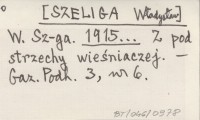 [SZELIGA Władysław]
W. Sz-ga. 1915... Z pod
strzechy wieśniaczej. –
Gaz. Podh. 3, nr 6.
BT/066/0978